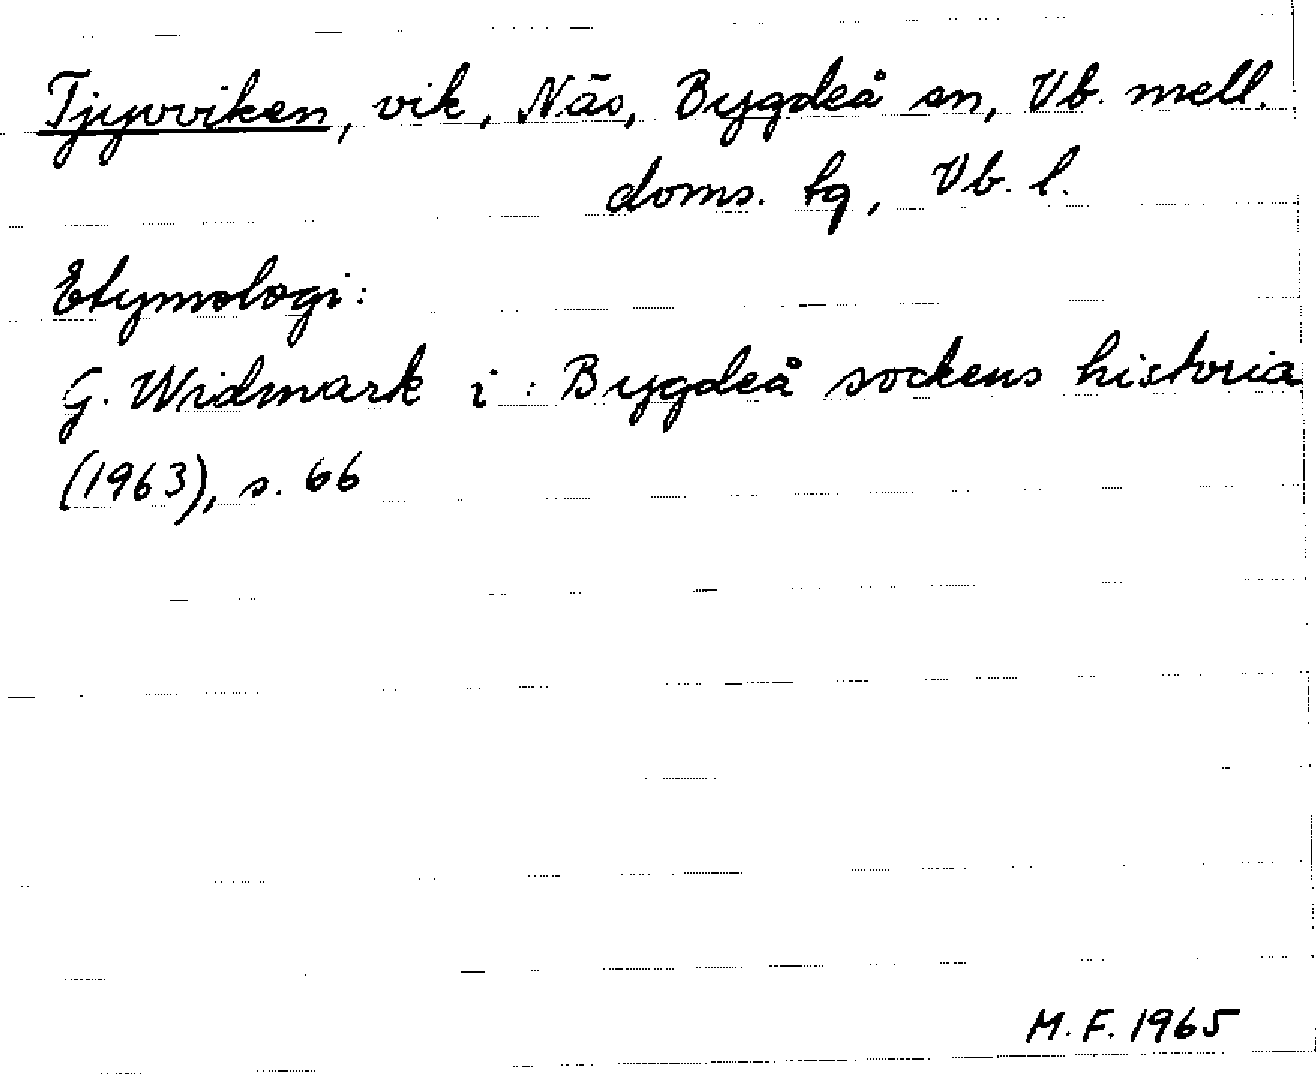 Tjyvviken, vik, Näs, Bygdeå sn, Vb. mell.
doms. tg, Vb. l.
Etymologi:
G. Widmark i: Bygdeå sockens historia
(1963), s. 66
M. F. 1965